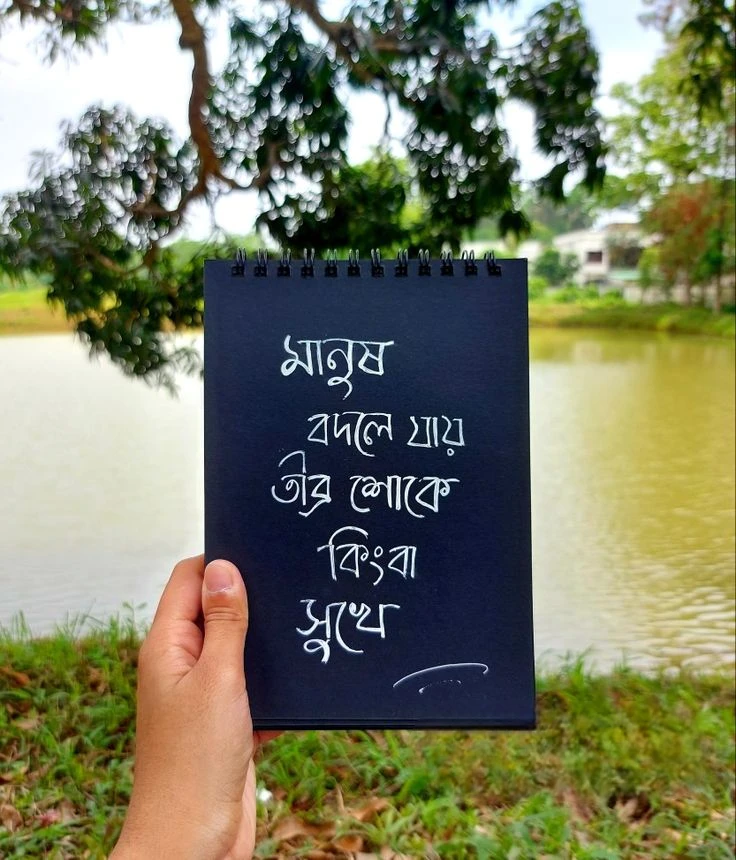 মানুষ
বদলে যায়
তীব্র শোকে
কিংবা
সুখে